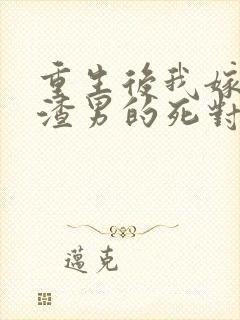 重生後我嫁
渣男的死對
邁克